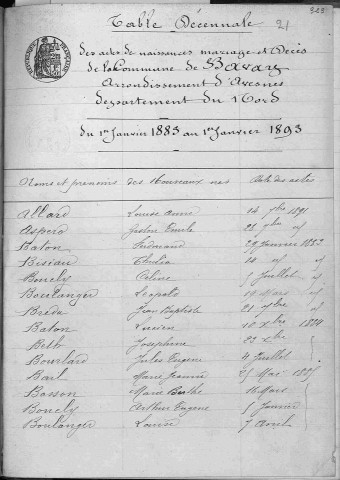 323
Table Décennale
21
des actes de naissances mariage et Décès
de la Commune de Bavay
Arrondissement d'Avesnes
département du Nord
du 1er Janvier 1883 au 1er Janvier 1893
Noms et prénoms des Nouveaux nés Date des actes
Allard Louise Anne 14 9bre 1891
Aspero Emile
Baton 29 Janvier
Bisiau
Boucly Céline Juillet
Boulanger Léopold 19 Mars
Breda Jean Baptiste 21
Baton Lucien 10 Xbre
Beth Josephine 23 Xbre
Bourlard Jules Eugène 4 Juillet
Bail Marie Jeanne Mai
Basson Marie Berthe 16 Mars
Boucly Arthur Eugene Janvier
Boulanger Louise 7 Avril